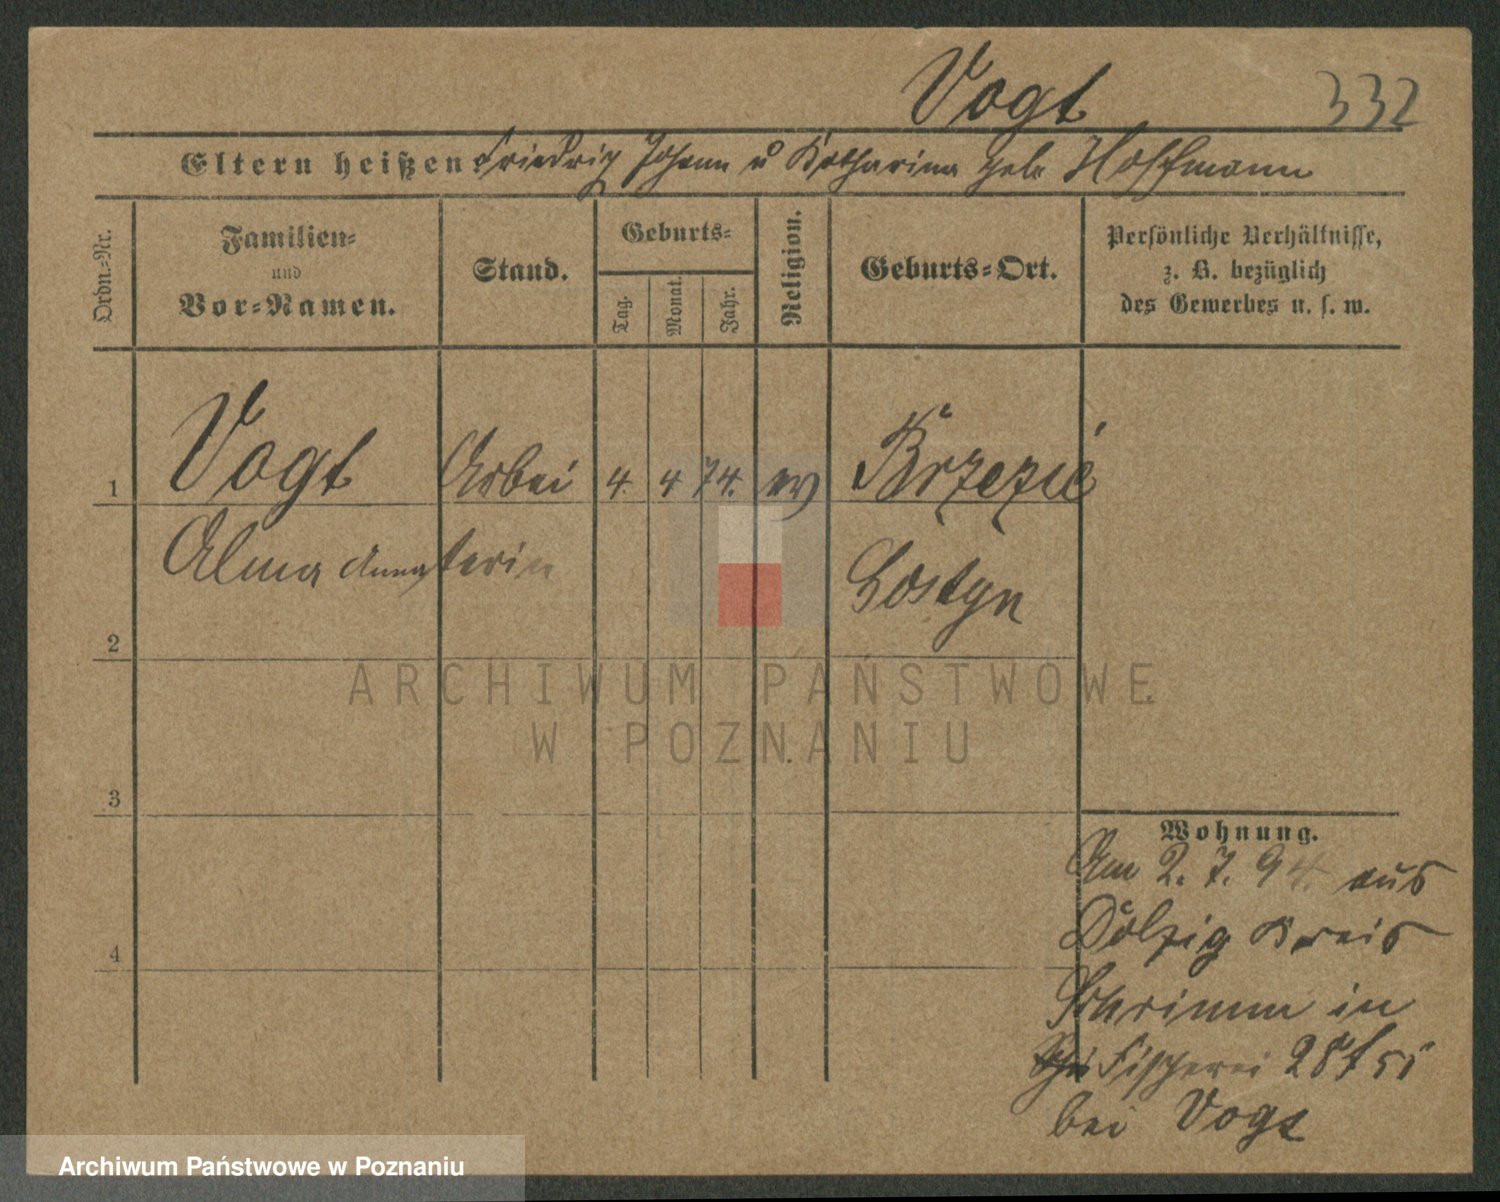 Vogt 332
Eltern heißen: Friedrich Johann u Katharina geb. Hoffmann
Ordn.-Nr.
Familien-
und
Vor-Namen.
Stand.
Geburts-
Tag. Monat. Jahr.
Religion.
Geburts-Ort.
Persönliche Verhältnisse,
z. B. bezüglich
des Gewerbes u. s. w.
1 Vogt Arbei 4. 4 74. ev
Alma Anna terin Gostyn
2
3
4
Wohnung.
Am 2. 7. 94. aus
Dolzig Kreis
Schrimm in
Fischerei
bei Vogt
ARCHIWUM PAŃSTWOWE
W POZNANIU
Archiwum Państwowe w Poznaniu